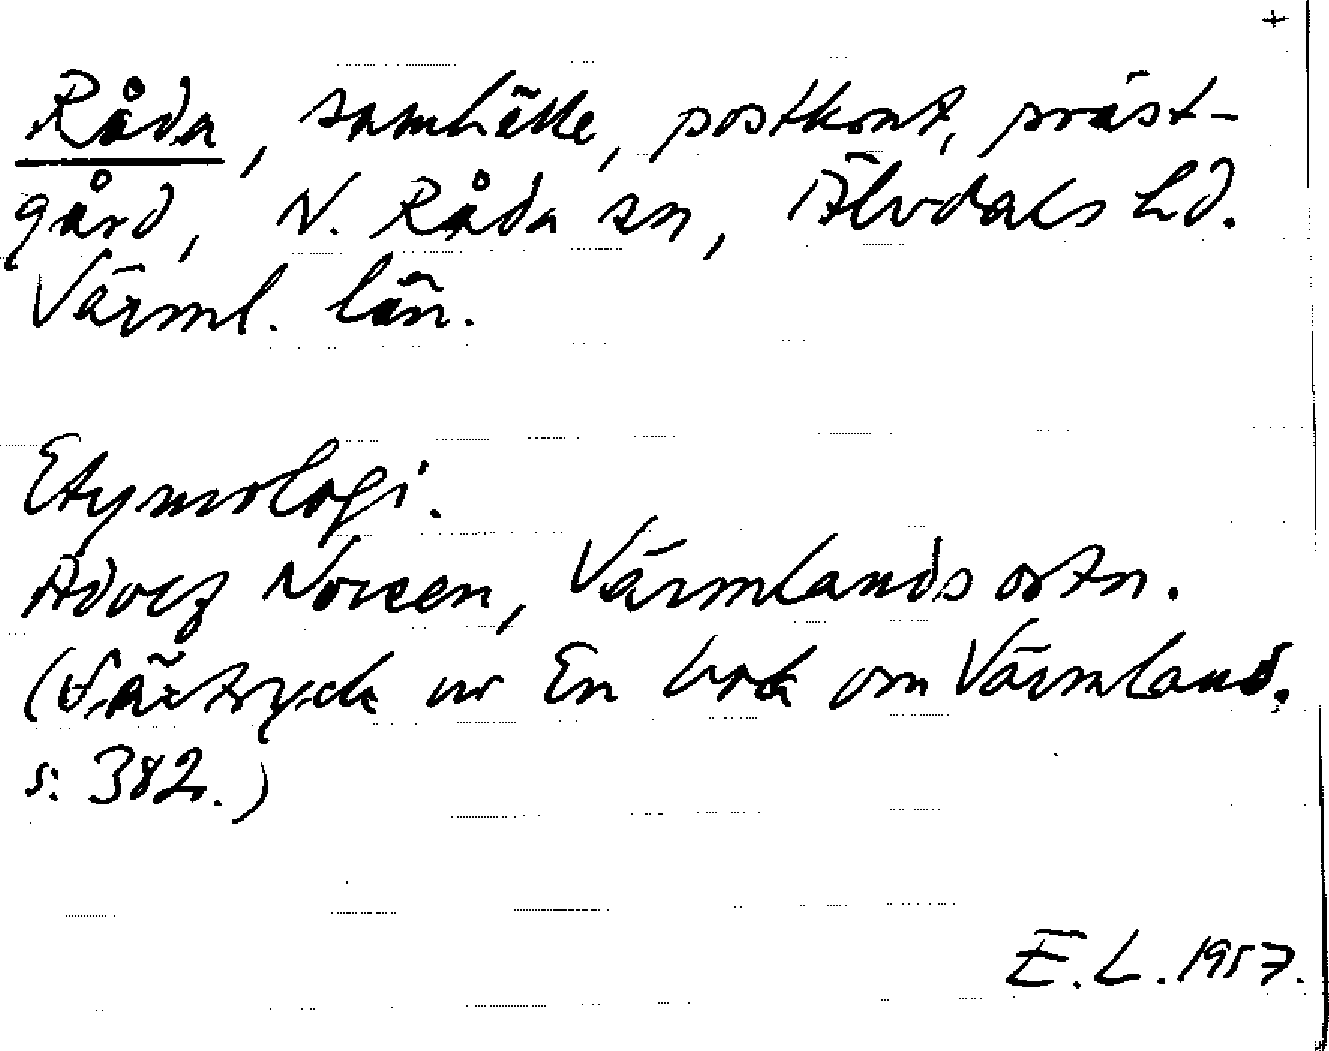 +
Råda, samhälle, postkont, präst-
gård, N. Råda sn, Älvdals hd.
Värml. län.
Etymologi.
Adolf Noreen, Värmlands ortn.
(Särtryck ur En bok om Värmland.
s. 382.)
E.L. 1957.